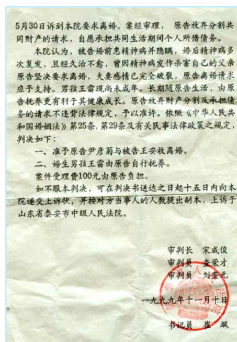 5月30日诉到本院要求离婚。案经审理，原告放弃分割共
同财产的请求，自愿承担共同生活期间个人所措债务。
本院认为，被告婚前患精神病并隐瞒，婚后精神病多
次复发，且经久治不愈，曾因精神病发作杀害自己的父亲
原告坚决要求离婚，夫妻感情已完全破裂，原告离婚请求
应予支持。男孩王雷现尚未成年，长期跟原告生活，由原
告抚养更有利于其健康成长。原告放弃财产分割及承担债
务的请求不违背法律规定，予以准许。依照《中华人民共
和国婚姻法》第25条，第29条及有关民事法律政策之规定，
判决如下：
一、准予原告尹彦菊与被告王安收离婚。
二、婚生男孩王雷由原告自行抚养。
案件受理费100元由原告负担。
如不服本判决，可在判决书送达之日起十五日内向本
院递交上诉状，并按对方当事人的人数提出副本，上诉于
山东省泰安市中级人民法院。
审判长 宋成俊
审判员 荣才
审判员 刘
一九九九年十一月十日
书记员 崔